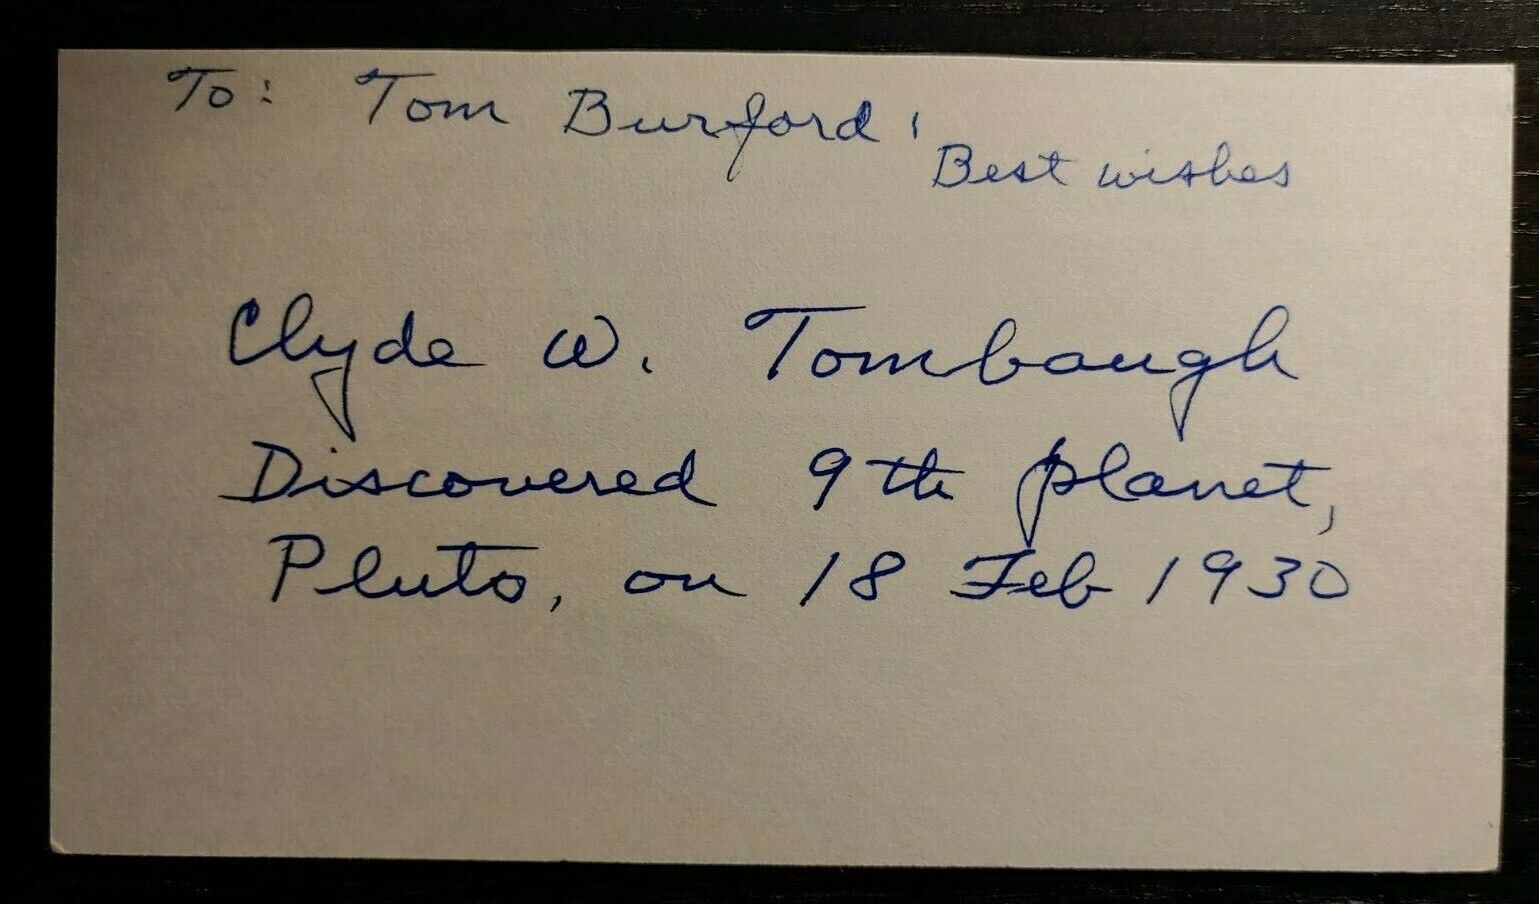 To: Tom Burford,
Best wishes
Clyde W. Tombaugh
Discovered 9th planet,
Pluto, on 18 Feb 1930